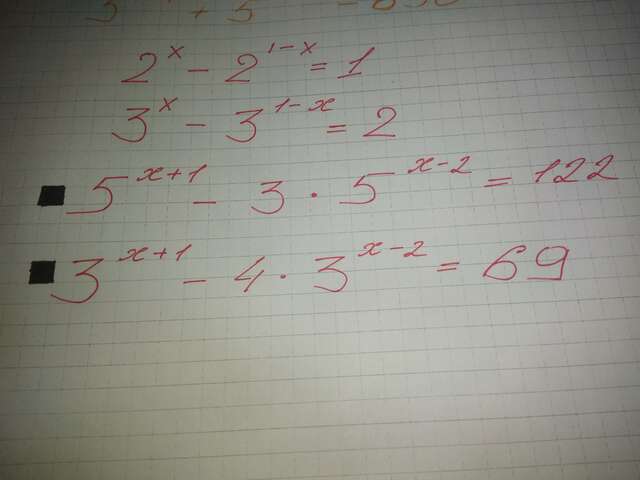 2^x - 2^{1-x} = 1
3^x - 3^{1-x} = 2
5^{x+1} - 3 · 5^{x-2} = 122
3^{x+1} - 4 · 3^{x-2} = 69